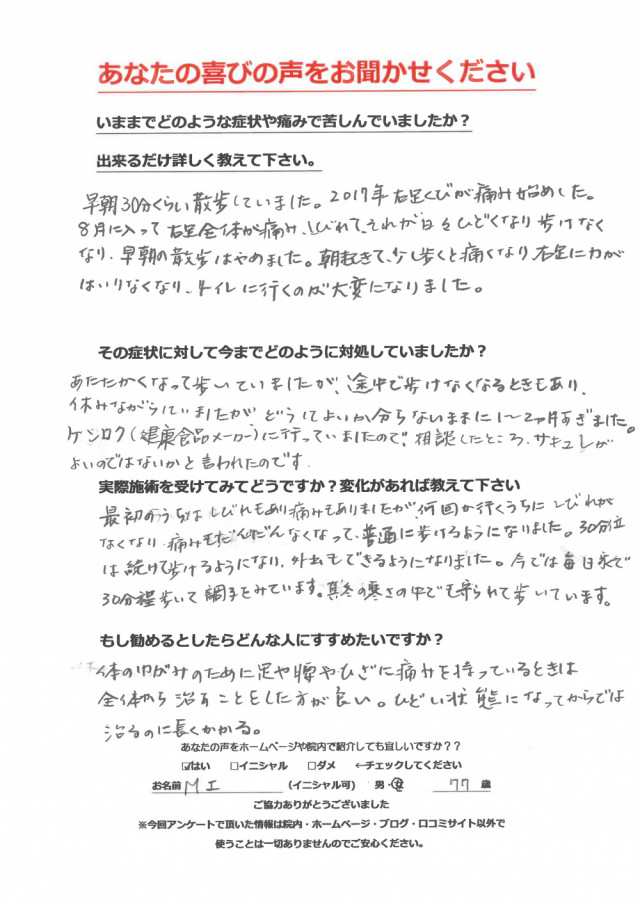 あなたの喜びの声をお聞かせください
いままでどのような症状や痛みで苦しんでいましたか？
出来るだけ詳しく教えて下さい。
早朝30分くらい散歩していました。2017年右足くびが痛み始めました。
8月に入って右足全体が痛み、しびれて、それが日々ひどくなり歩けなく
なり、早朝の散歩はやめました。朝起きて、少し歩くと痛くなり、右足に力が
はいりなくなり、トイレに行くのが大変になりました。
その症状に対して今までどのように対処していましたか？
あたたかくなって歩いていましたが、途中で歩けなくなるときもあり、
休みながらしていましたが どうしてよいか分らないままに1〜2ヶ月すぎました。
ケンロク(健康食品メーカー)に行っていましたので、相談したところ、サキュレが
よいのではないかと言われたのです.
実際施術を受けてみてどうですか？変化があれば教えて下さい
最初のうちはしびれもあり痛みもありましたが、何回か行くうちに しびれが
なくなり、痛みもだんだんなくなって、普通に歩けるようになりました。30分位
は続けて歩けるようになり、外出もできるようになりました。今では毎日家で
30分程歩いて調子をみています。真冬の寒さの中でも守られて歩いています。
もし勧めるとしたらどんな人にすすめたいですか？
体のゆがみのために足や腰やひざに痛みを持っているときは
全体から治すことをした方が良い。ひどい状態になってからでは
治るのに長くかかる。
あなたの声をホームページや院内で紹介しても宜しいですか？？
☑はい □イニシャル □ダメ ←チェックしてください
お名前 M I (イニシャル可) 男・女 77 歳
ご協力ありがとうございました
※今回アンケートで頂いた情報は院内・ホームページ・ブログ・口コミサイト以外で
使うことは一切ありませんのでご安心ください。